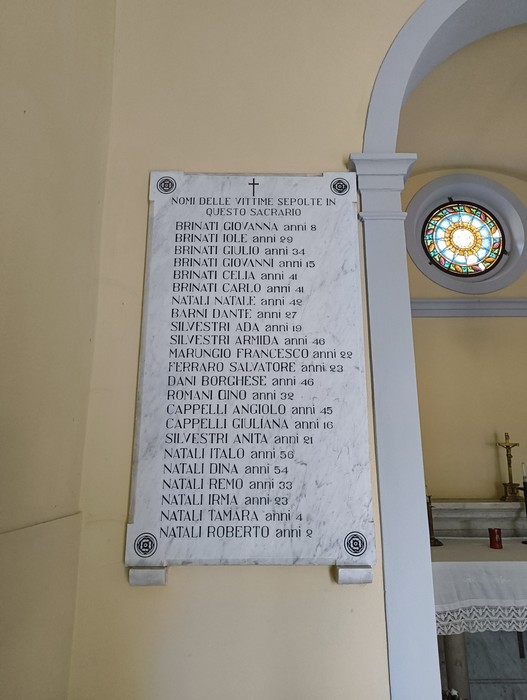 NOMI DELLE VITTIME SEPOLTE IN
QUESTO SACRARIO
BRINATI GIOVANNA anni 8
BRINATI IOLE anni 29
BRINATI GIULIO anni 34
BRINATI GIOVANNI anni 15
BRINATI CELIA anni 41
BRINATI CARLO anni 41
NATALI NATALE anni 42
BARNI DANTE anni 27
SILVESTRI ADA anni 19
SILVESTRI ARMIDA anni 46
MARUNGIO FRANCESCO anni 22
FERRARO SALVATORE anni 23
DANI BORGHESE anni 46
ROMANI DINO anni 32
CAPPELLI ANGIOLO anni 45
CAPPELLI GIULIANA anni 16
SILVESTRI ANITA anni 21
NATALI ITALO anni 56
NATALI DINA anni 54
NATALI REMO anni 33
NATALI IRMA anni 23
NATALI TAMARA anni 4
NATALI ROBERTO anni 2